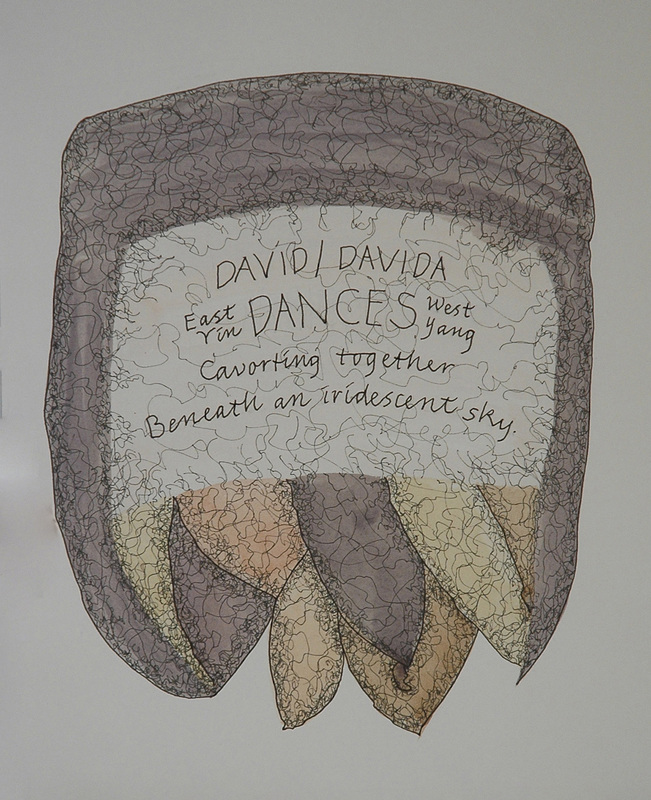 DAVID/DAVIDA
East Yin DANCES West Yang
Cavorting together
Beneath an iridescent sky.